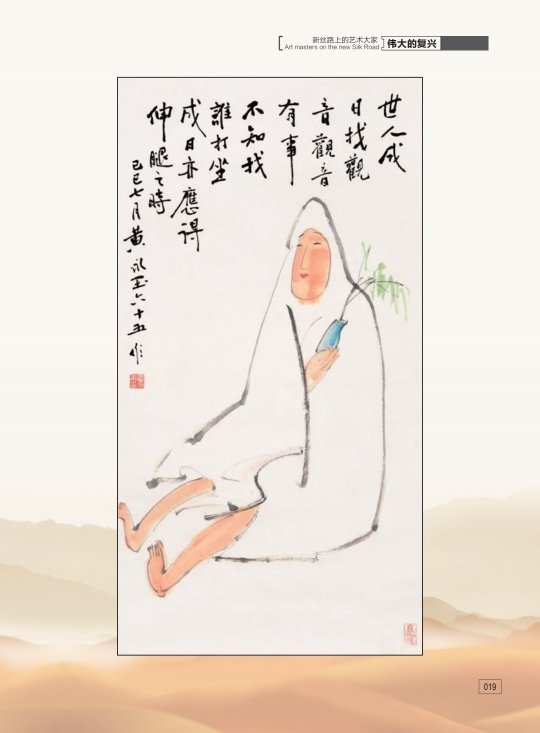 新丝路上的艺术大家
Art masters on the new Silk Road
伟大的复兴
世人成
日找觀
音觀音
有事
不知找
誰打坐
成日亦應得
伸腿之時
己巳七月黄永玉六十五作
019